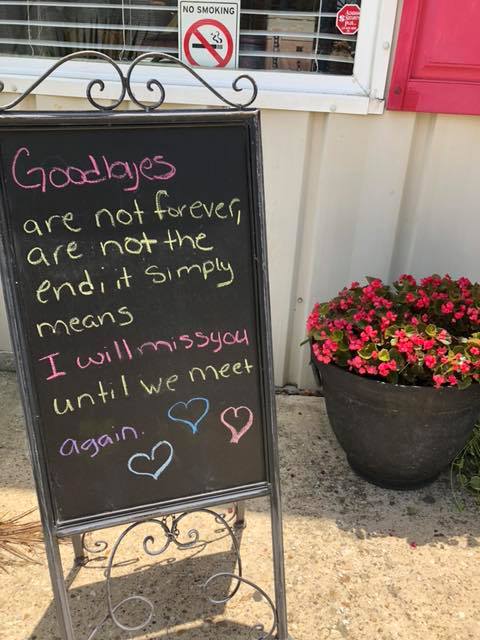 NO SMOKING
Goodbyes
are not forever,
are not the
end; it simply
means
I will miss you
until we meet
again.